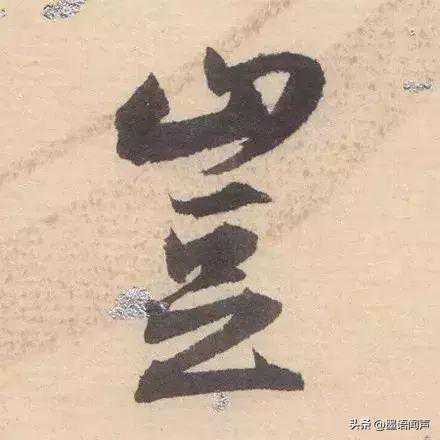 豈
头条@墨语闻声